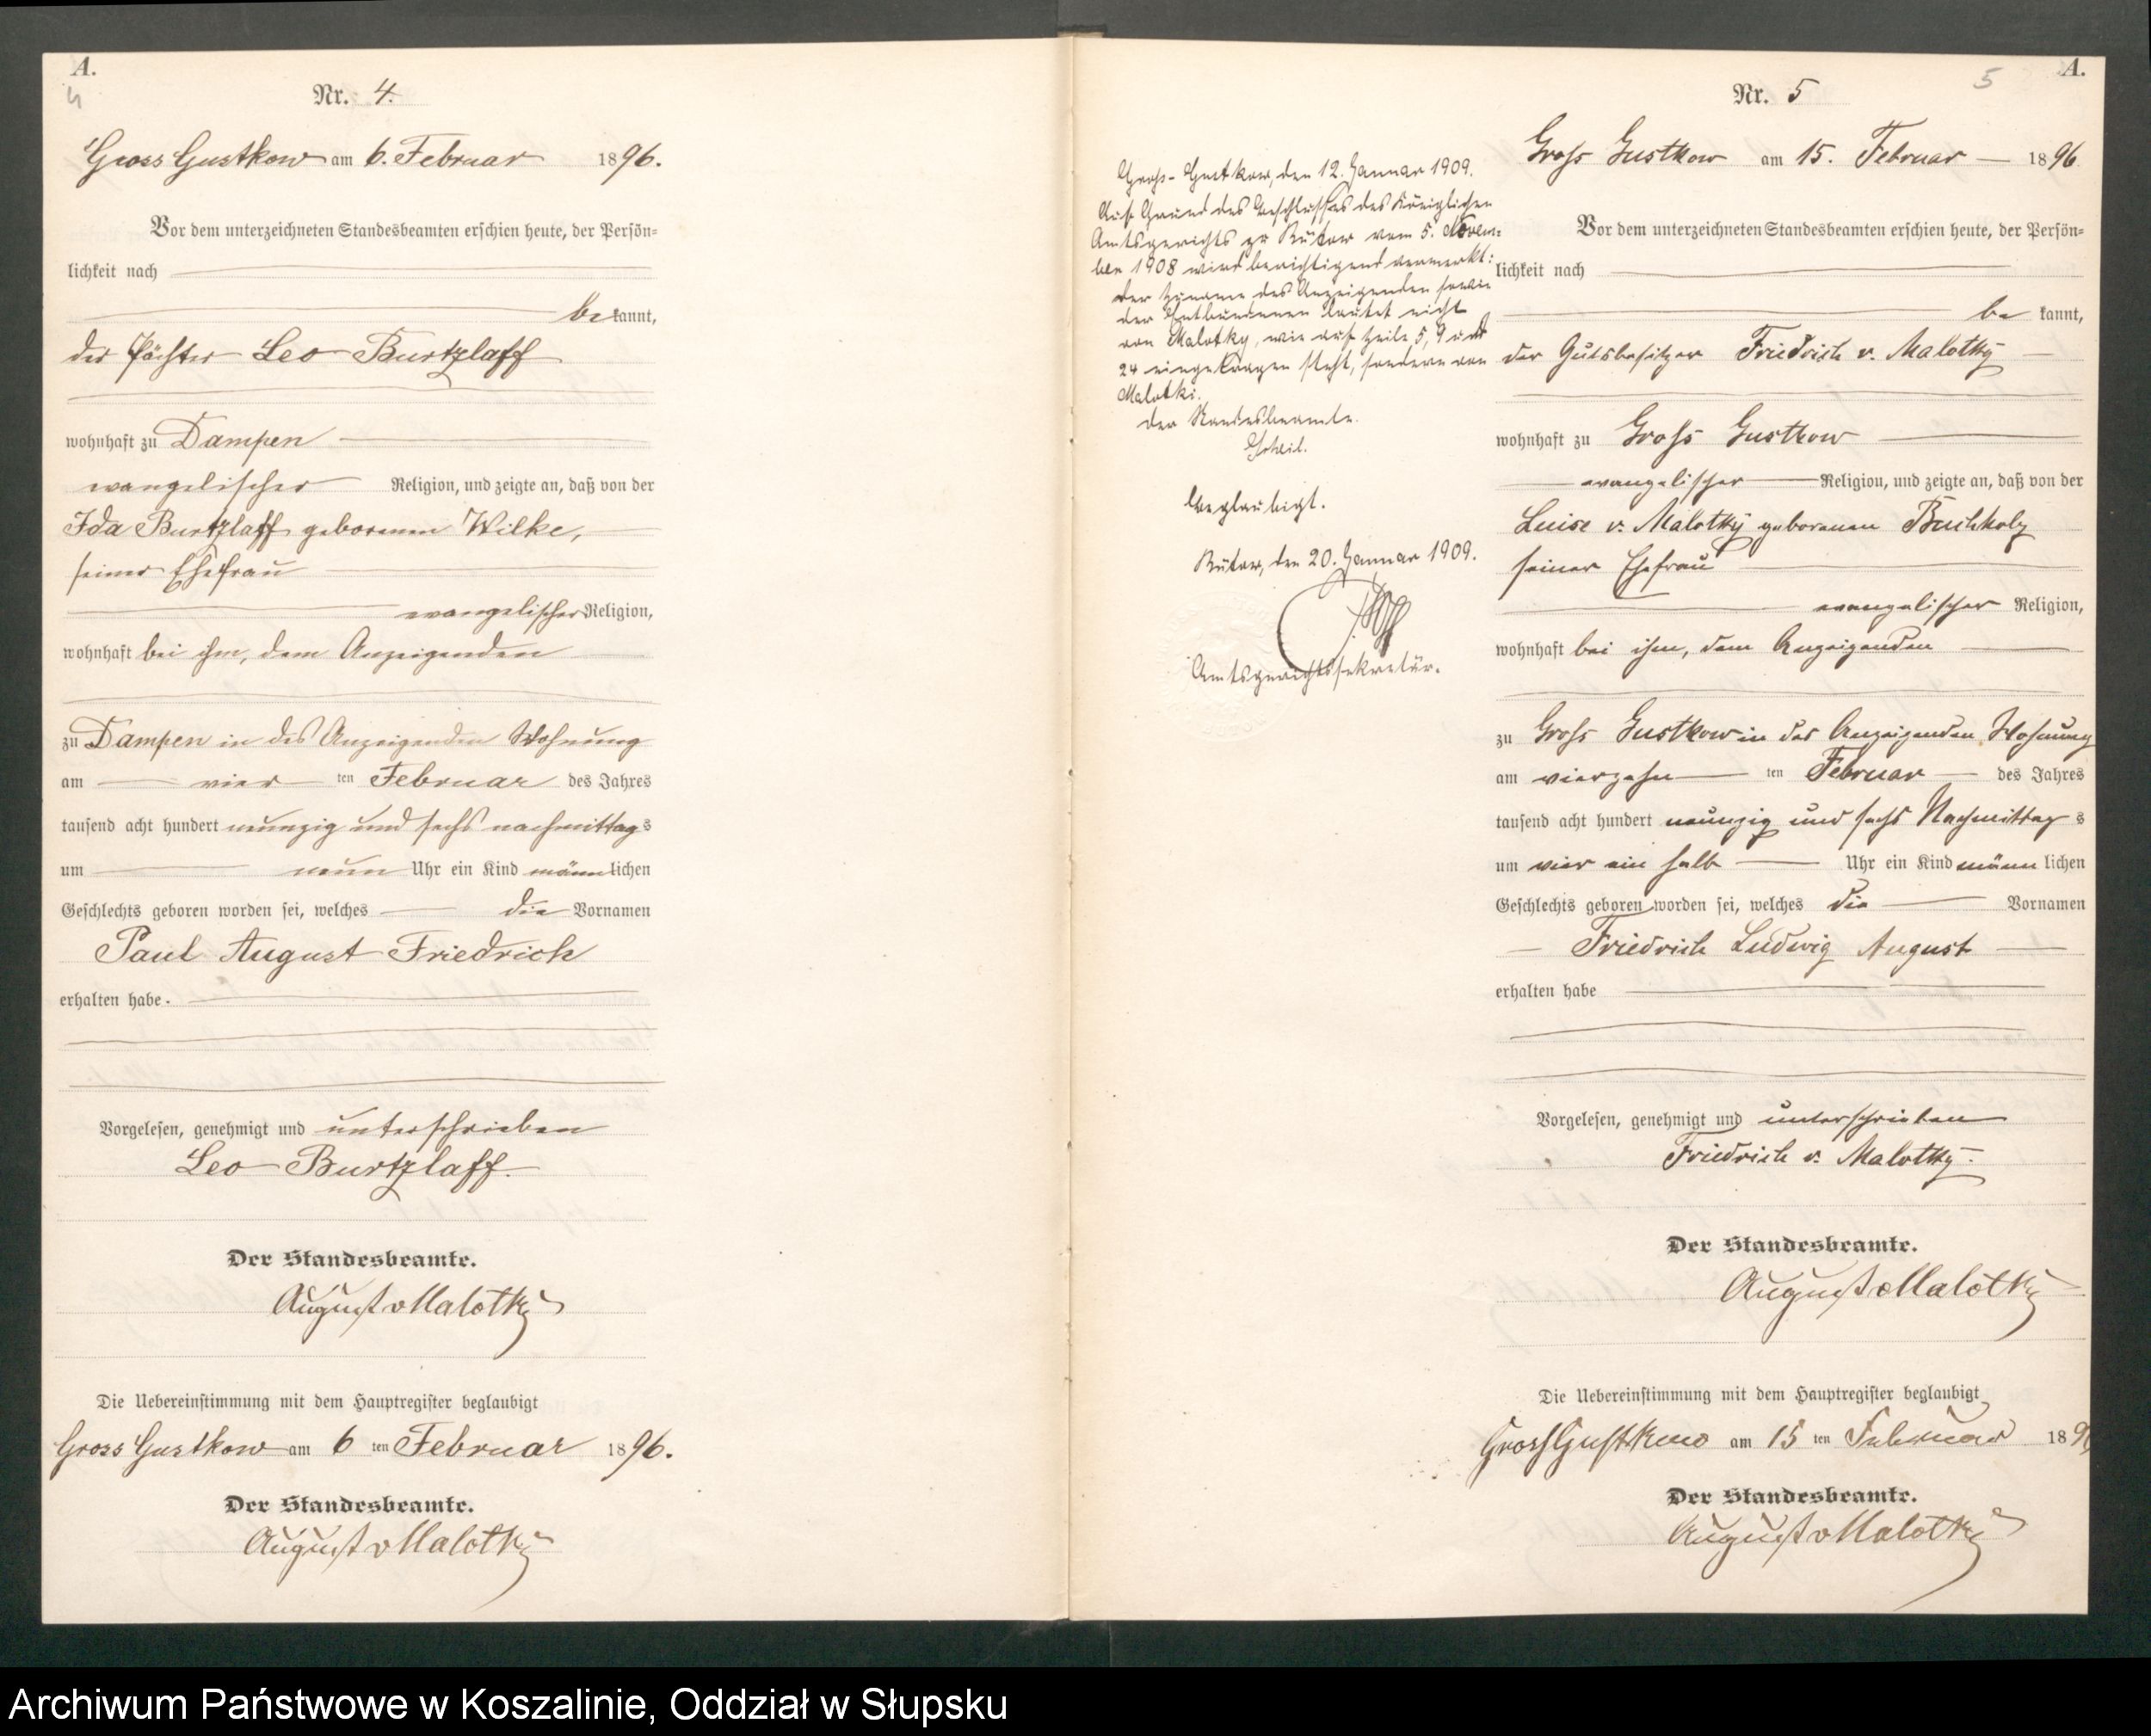 A.
4
Nr. 4.
Gross Gustkow am 6. Februar 1896.
Vor dem unterzeichneten Standesbeamten erschien heute, der Persön=
lichkeit nach
bekannt,
der Pächter Leo Burtzlaff
wohnhaft zu Dampen
evangelischer Religion, und zeigte an, daß von der
Ida Burtzlaff geborenen Wilke,
seiner Ehefrau
evangelischer Religion,
wohnhaft bei ihm, dem Anzeigenden
zu Dampen in des Anzeigenden Wohnung
am vier ten Februar des Jahres
tausend acht hundert neunzig und sechs nachmittags
um neun Uhr ein Kind männlichen
Geschlechts geboren worden sei, welches die Vornamen
Paul August Friedrich
erhalten habe.
Vorgelesen, genehmigt und unterschrieben
Leo Burtzlaff.
Der Standesbeamte.
August v Malotky
Die Uebereinstimmung mit dem Hauptregister beglaubigt
Gross Gustkow am 6 ten Februar 1896.
Der Standesbeamte.
August v Malotky
5
A.
Nr. 5
Groß-Gustkow, den 12. Januar 1909.
Auf Grund des Beschlusses des Königlichen
Amtsgerichts zu Bütow vom 5. Novem=
ber 1908 wird berichtigend vermerkt:
der Zuname des Anzeigenden sowie
der Entbundenen lautet nicht
von Malotky, wie auf Zeile 5, 9 und
24 eingetragen steht, sondern von
Malotki.
Der Standesbeamte.
Beglaubigt.
Bütow, den 20. Januar 1909.
Amtsgerichtssekretär.
Groß Gustkow am 15. Februar 1896
Vor dem unterzeichneten Standesbeamten erschien heute, der Persön=
lichkeit nach
be kannt,
der Gutsbesitzer Friedrich v. Malotky
wohnhaft zu Groß Gustkow
evangelischer Religion, und zeigte an, daß von der
Luise v. Malotky geborenen Buchholz
seiner Ehefrau
evangelischer Religion,
wohnhaft bei ihm, dem Anzeigenden
zu Groß Gustkow in des Anzeigenden Wohnung
am vierzehn ten Februar des Jahres
tausend acht hundert neunzig und sechs Nachmittag s
um vier ein halb Uhr ein Kind männ lichen
Geschlechts geboren worden sei, welches die Vornamen
Friedrich Ludwig August
erhalten habe
Vorgelesen, genehmigt und unterschrieben
Friedrich v. Malotky.
Der Standesbeamte.
August v Malotky
Die Uebereinstimmung mit dem Hauptregister beglaubigt
Groß Gustkow am 15 ten Februar 189
Der Standesbeamte.
August v Malotky
Archiwum Państwowe w Koszalinie, Oddział w Słupsku